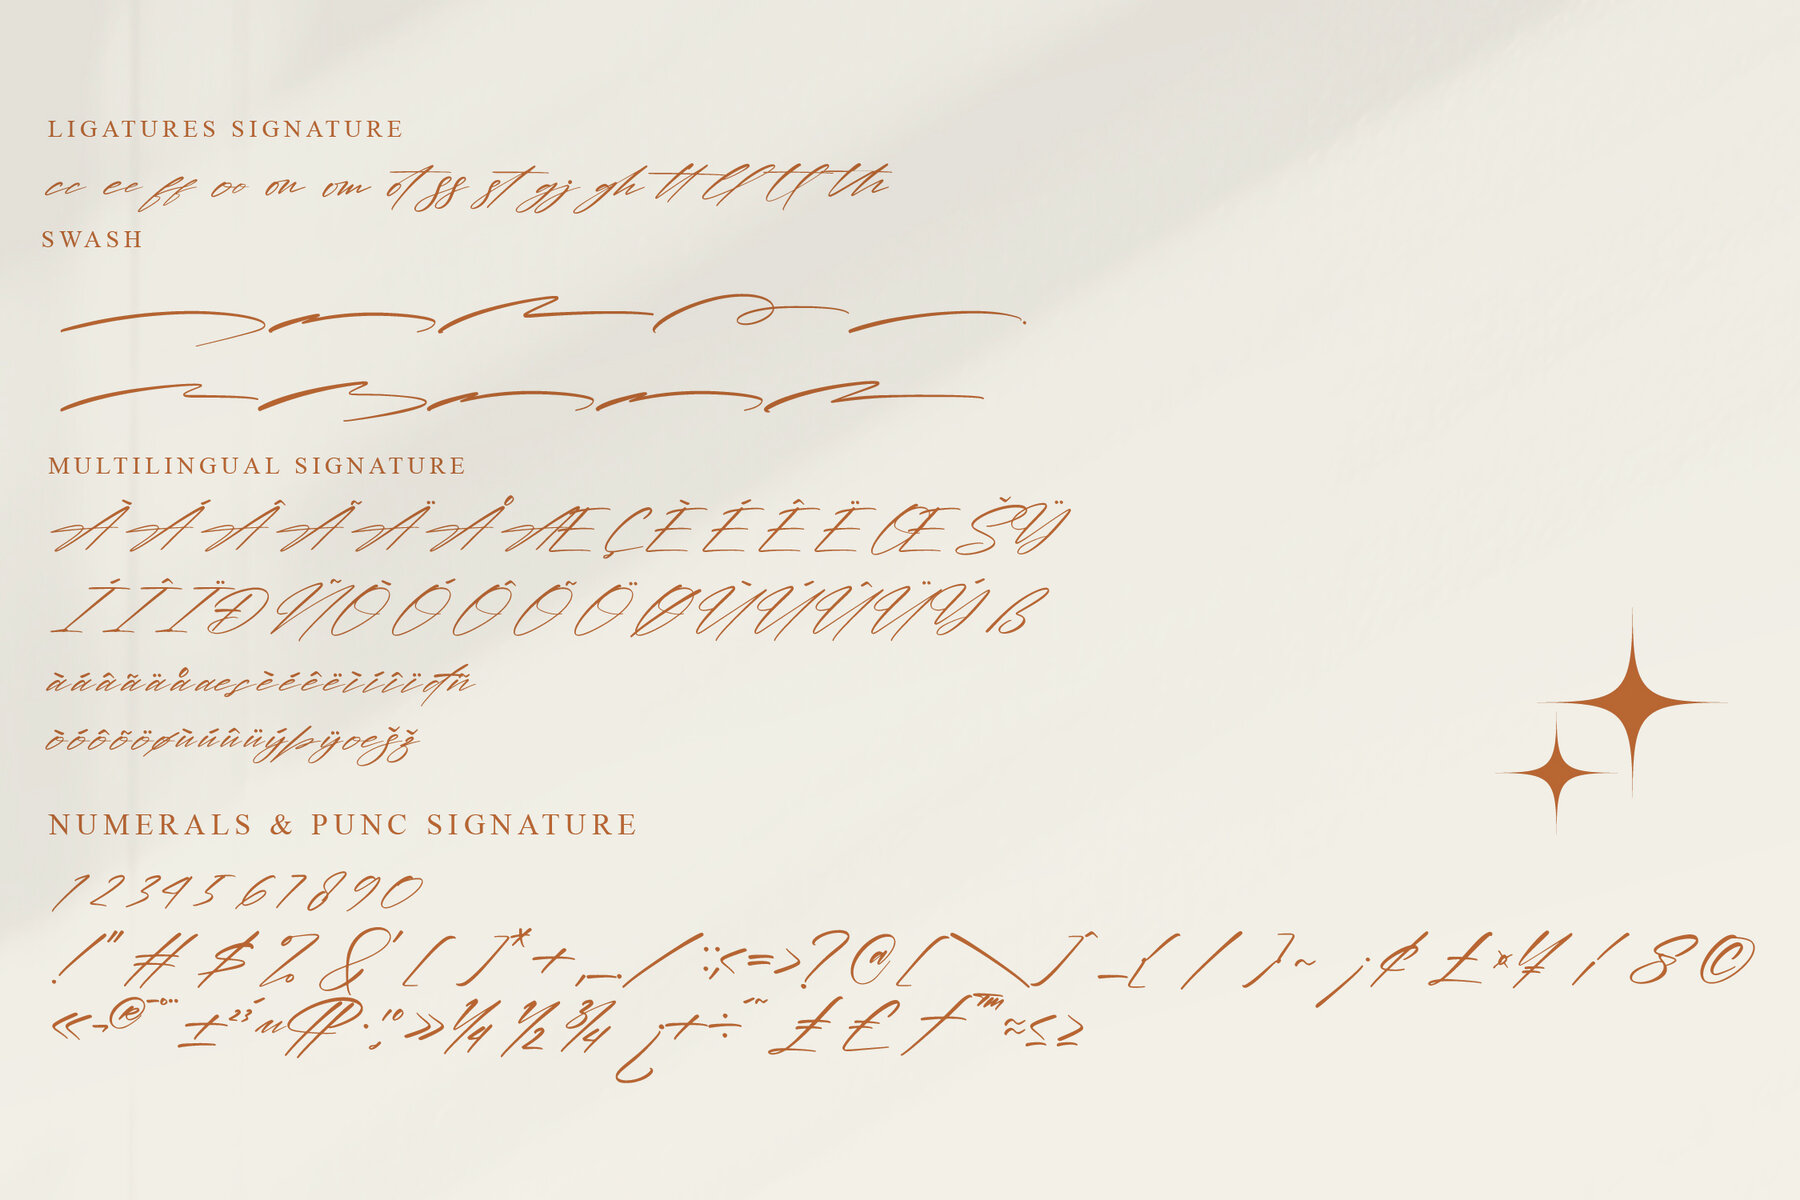 LIGATURES SIGNATURE
cc ee ff oo on om ot ss st gj gh tt ll tl th
SWASH
MULTILINGUAL SIGNATURE
À Á Â Ã Ä Å Æ Ç È É Ê Ë Œ Š Ÿ
Í Î Ï Ð Ñ Ò Ó Ô Õ Ö Ø Ù Ú Û Ü Ý ß
à á â ã ä å æ ç è é ê ë ì í î ï ð ñ
ò ó ô õ ö ø ù ú û ü ý þ ÿ œ š ž
NUMERALS & PUNC SIGNATURE
1 2 3 4 5 6 7 8 9 0
! " # $ % & ' ( ) * + , - . / : ; < = > ? @ [ \ ] ^ _ { | } ~ ¡ ¢ £ ¤ ¥ ¦ § ©
« ¬ ® ¯ ° ¨ ± ² ³ ´ µ ¶ · ¸ ¹ º » ¼ ½ ¾ ¿ + ÷ ˜ £ € ƒ ™ ≈ ≤ ≥